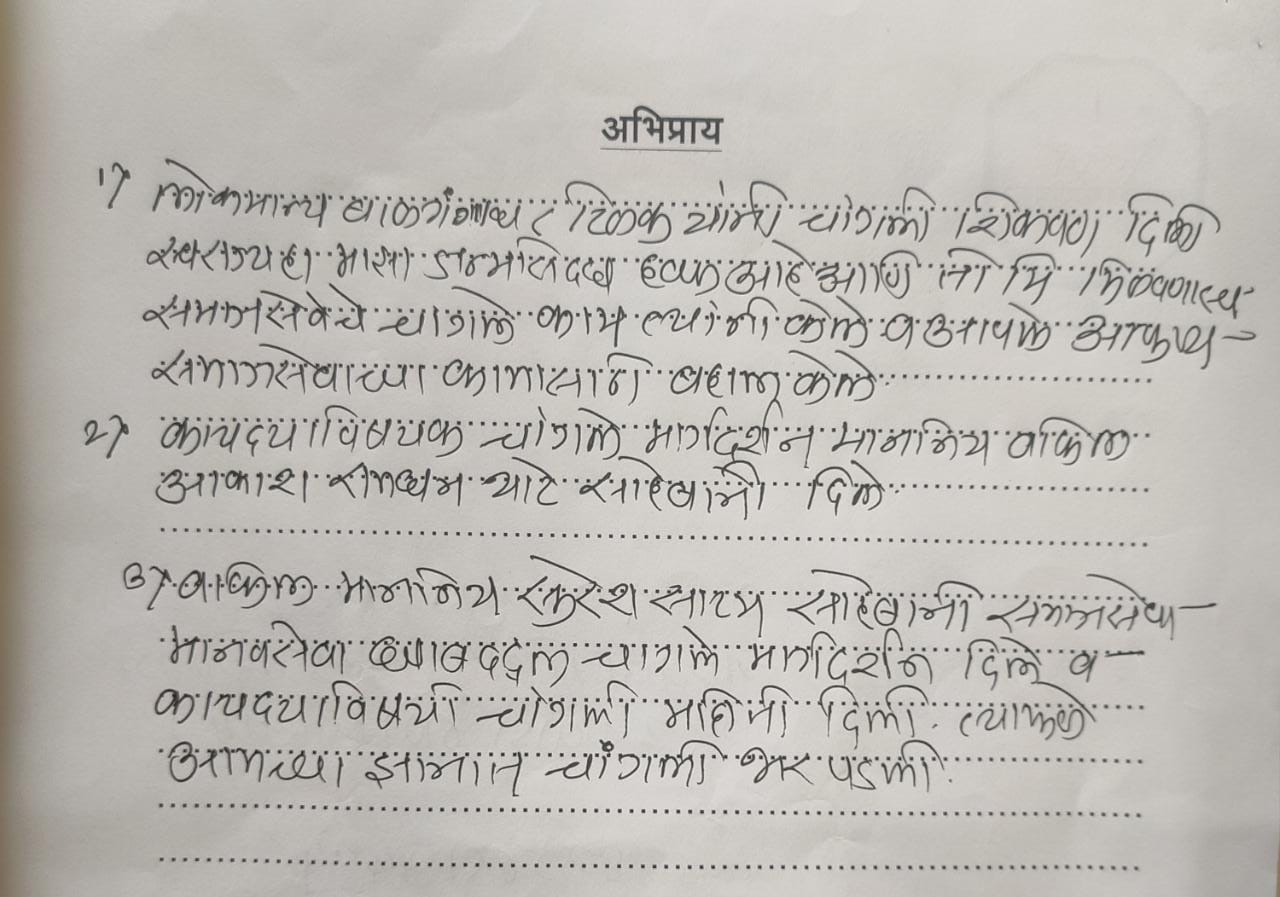 अभिप्राय
1) लोकमान्य बाळगंगाधर टिळक यांनी चांगली शिकवण दिली
स्वराज्य हा माझा जन्मसिद्ध हक्क आहे आणि तो मि मिळवणारच
समाजसेवेचे चांगले काम त्यांनी केले व आपले आयुष्य
समाजसेवाच्या कामासाठी बहाल केले
2) कायदयाविषयक चांगले मार्गदर्शन माननिय वकिल
आकाश साहेबांनी दिले
3) वकिल माननिय साहेबांनी समाजसेवा
मानवसेवा ह्याबद्दल चांगले मार्गदर्शन दिले व
कायदयाविषयी चांगली माहिती दिली. त्यामुळे
आमच्या ज्ञानात चांगली भर पडली.